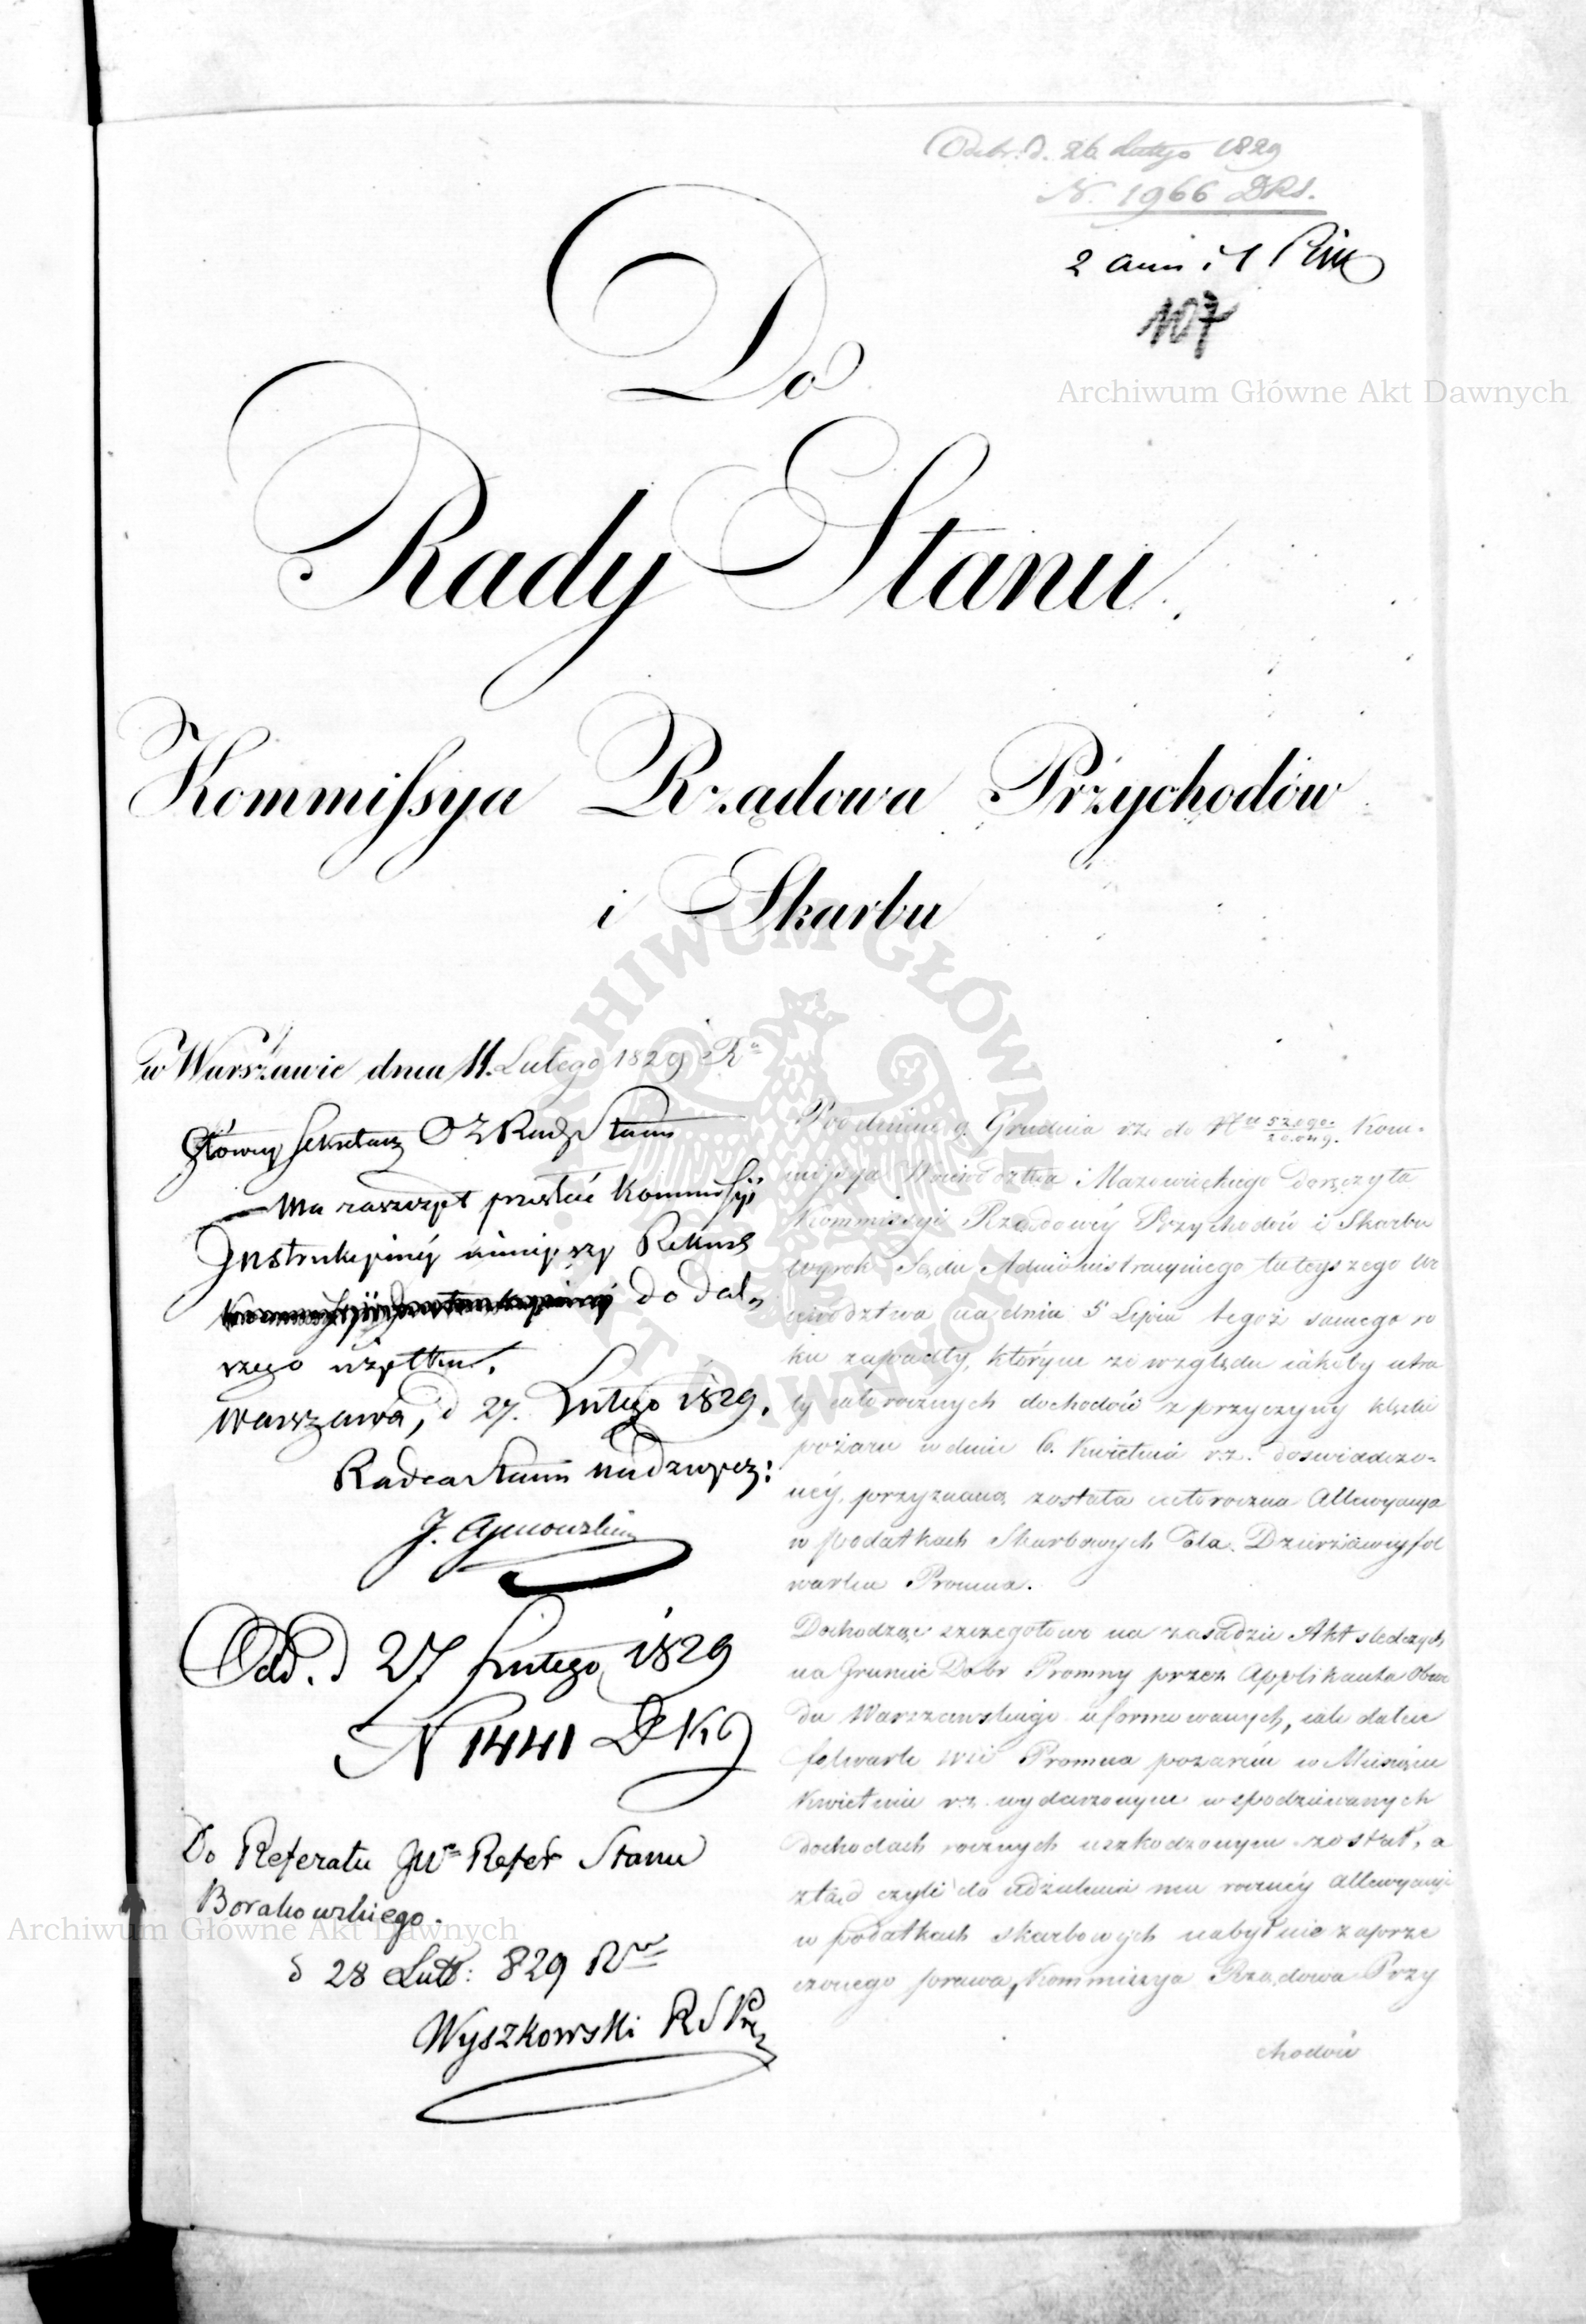 Odebr. d. 26 Lutego 1829
N. 1966 DRS.
2 ann i 1
107
Archiwum Główne Akt Dawnych
Do
Rady Stanu.
Kommissya Rządowa Przychodów
i Skarbu
w Warszawie dnia 11. Lutego 1829 Ru
Główny Sekretarz Rady Stanu
Ma zaszczyt przesłać Kommissyi
Instrukcyinéy ninieyszy Rekurs
do dal„
szego użytku.
Warszawa, d 27. Lutego 1829.
Radca Stanu nadzwycz:
J.
Odd. d 27 Lutego 1829
N 1441
Do Referatu JWo Refer Stanu
Borakowskiego.
d 28 Lutt: 829 Ru
Wyszkowski RS
Pod dniem 9. Grudnia r.z. do Nru 52090./20.049. Kom-
missya Woiewództwa Mazowieckiego doręczyła
Kommissyi Rządowéy Przychodów i Skarbu
wyrok Sądu Administracyinego tuteyszego Wo
iewództwa na dniu 5 Lipca tegoż samego ro
ku zapadły, którym ze względu iakoby utra
ty całorocznych dochodów z przyczyny klęski
pożaru w dniu 6. Kwietnia r.z. doswiadczo-
néy, przyznaną została całoroczna Allewyacya
w podatkach Skarbowych dla Dzierżawcy fol
warku Promna.
Dochodząc szczegołowo na zasadzie Akt sledczych
na Gruncie Dobr Promny przez Applikanta Obwo
du Warszawskiego uformowanych, iak dalece
folwark wsi Promna pożarem w Miesiącu
Kwietniu r.z. wydarzonym w spodziewanych
dochodach rocznych uszkodzonym został, a
ztąd czyli do udzielenia mu roczney Allewyacyi
w podatkach skarbowych nabył niezaprze
czonego prawa, Kommissya Rządowa Przy
chodów
Archiwum Główne Akt Dawnych
ARCHIWUM GŁÓWNE AKT DAWNYCH